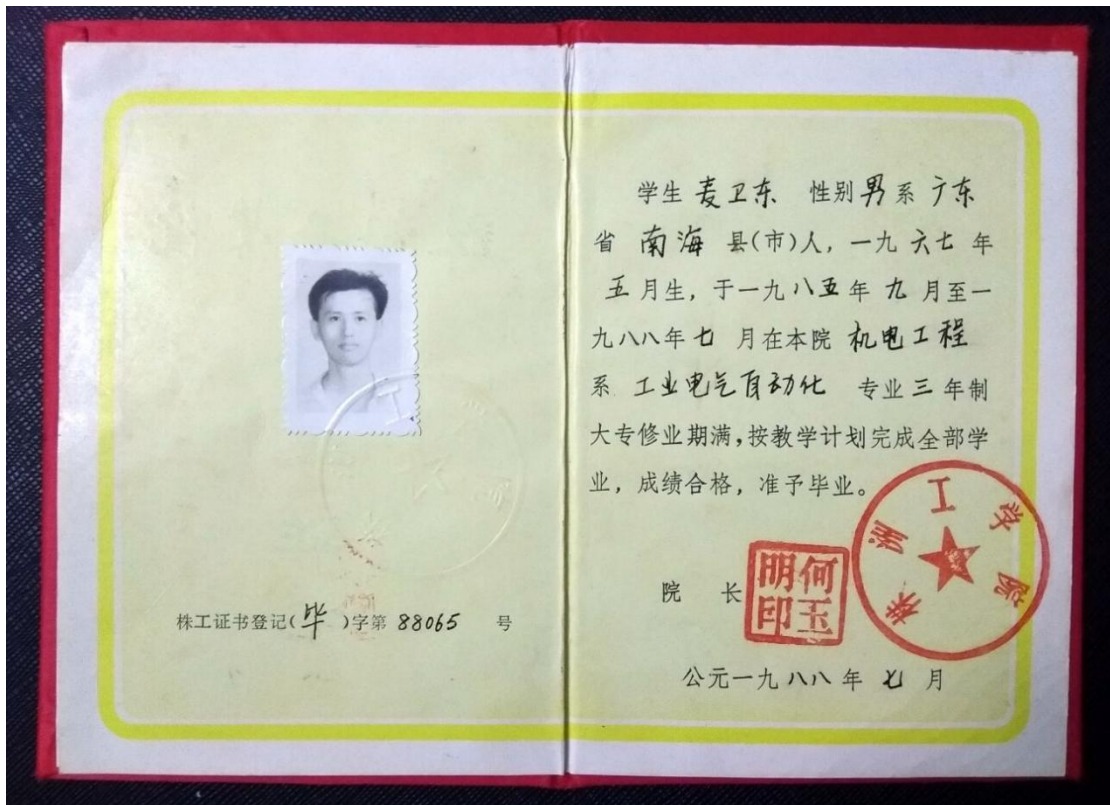 株工证书登记(毕)字第 88065 号
学生 麦卫东 性别 男 系 广东
省 南海 县(市)人，一九六七年
五月生，于一九八五年九月至一
九八八年七月在本院 机电工程
系 工业电气自动化 专业三年制
大专修业期满，按教学计划完成全部学
业，成绩合格，准予毕业。
院 长
何玉明印
株洲工学院
公元一九八八年七月